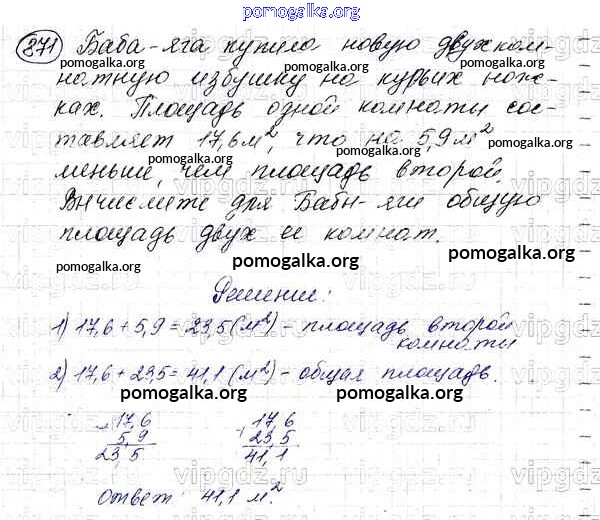 pomogalka.org
871 Баба-яга купила новую двухком-
натную избушку на курьих нож-
pomogalka.org
ках. Площадь одной комнаты сос-
pomogalka.org
тавляет 17,6 м², что на 5,9 м²
pomogalka.org pomogalka.org
меньше, чем площадь второй.
pomogalka.org
Вычислите для Бабы-яги общую
pomogalka.org
площадь двух ее комнат.
pomogalka.org pomogalka.org
Решение:
pomogalka.org
1) 17,6 + 5,9 = 23,5 (м²) - площадь второй
комнаты
pomogalka.org
2) 17,6 + 23,5 = 41,1 (м²) - общая площадь.
pomogalka.org pomogalka.org
+ 17,6 + 17,6
5,9 23,5
23,5 41,1
vipgdz.ru
Ответ: 41,1 м².
pomogalka.org pomogalka.org